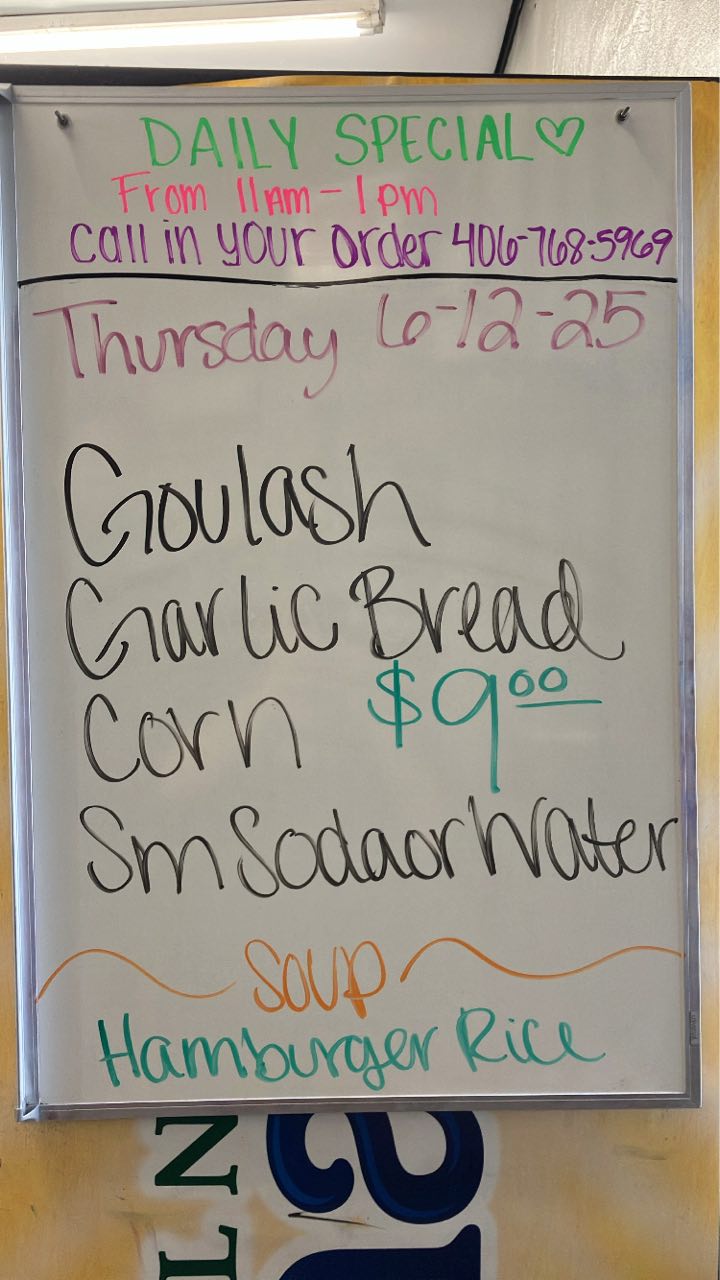 DAILY SPECIAL♡
From 11am - 1pm
call in your order 406-768-5969
Thursday 6-12-25
Goulash
Garlic Bread
Corn $9.00
Sm Soda or Water
Soup
Hamburger Rice